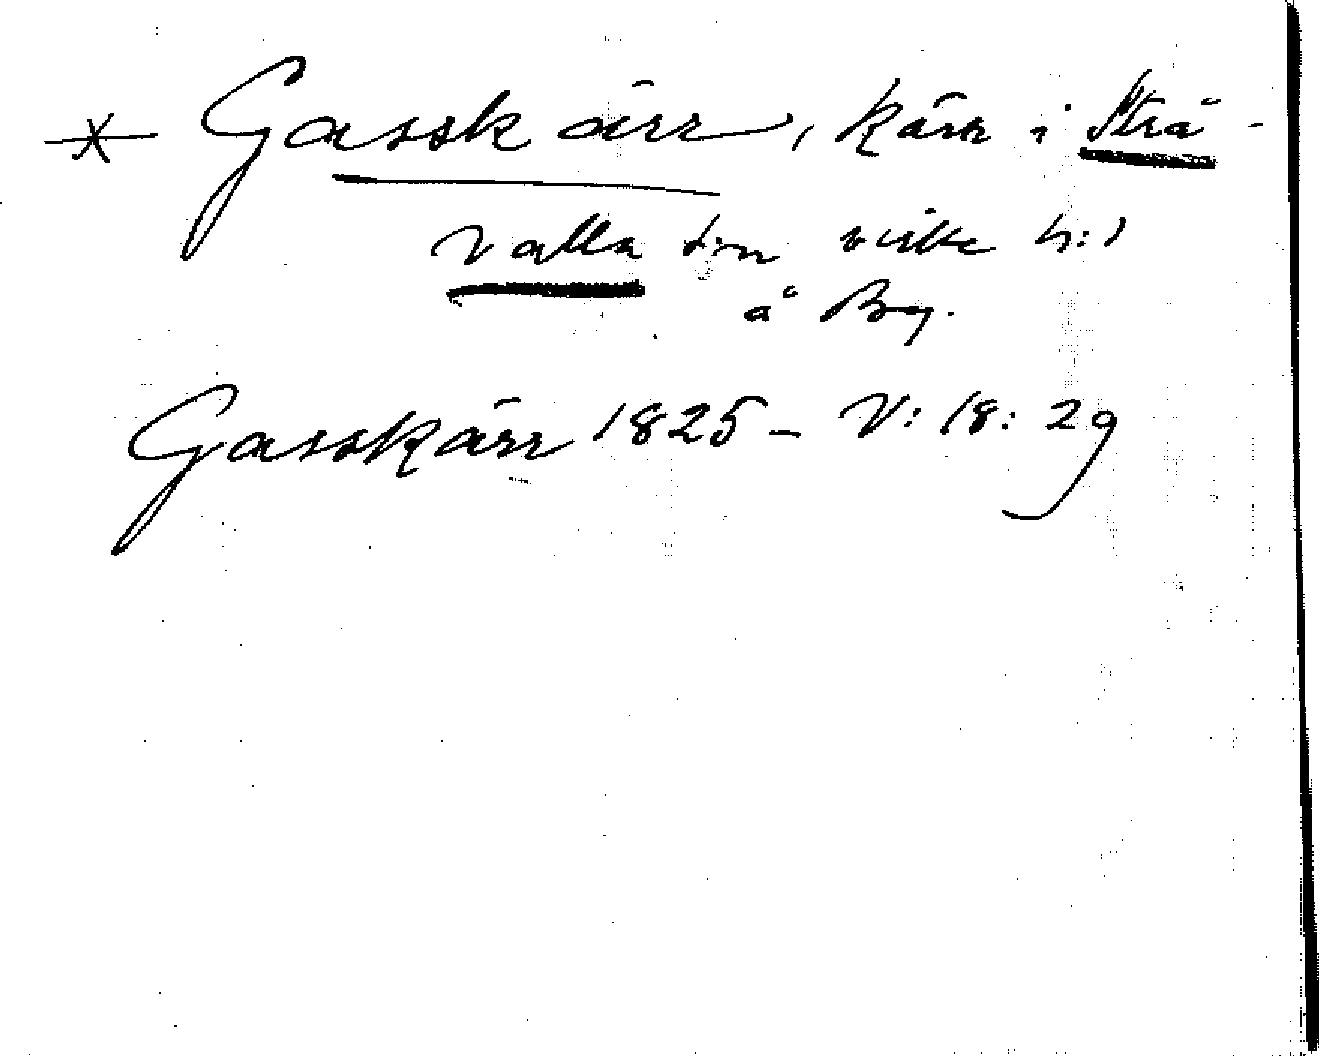 * Gasskärr, kärr i Strå-
valla sn Viske h:d
å By.
Gasskärr 1825 – V: 18: 29